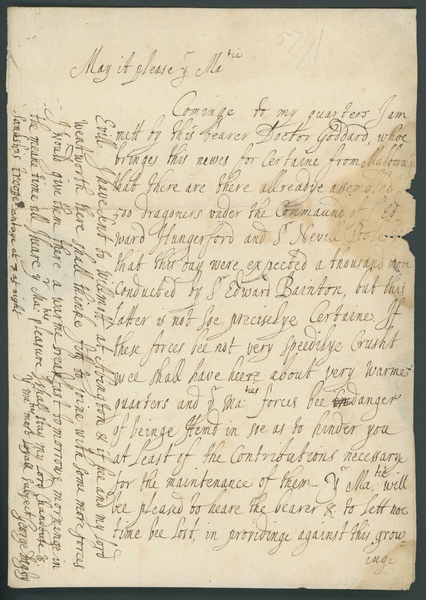 5791
May it please yr Matie
Cominge to my quarters I am
mett by this bearer Doctor Goddard, whoe
bringes this newes for Certaine from
that there are there allreadye assembled
500 dragoners under the Commaund of Sr Ed
ward Hungerford and Sr Nevill
that this day were expected a thousand more
Conducted by Sr Edward Baenton, but this
latter is not soe preciselye Certaine. If
these forces bee not very speedilye Crusht
wee shall have heere about very warme
quarters and yr Maties forces bee in danger
of beinge Hemd in soe as to hinder you
at Least of the Contributions necessary
for the maintenance of them yr Matie will
bee pleased to heare the bearer & to lett noe
time bee lost, in providinge against this grow
inge
Evill I have sent by willmott at &
and my lord
wentworth there shall thinke fitt to joine with some more forces
I would give them there a warme breakfast to morrow morninge in
the meane time ill speare yr Maties pleasure I shall try my Lord
yr Maties most loyall subject George
at 7 at night